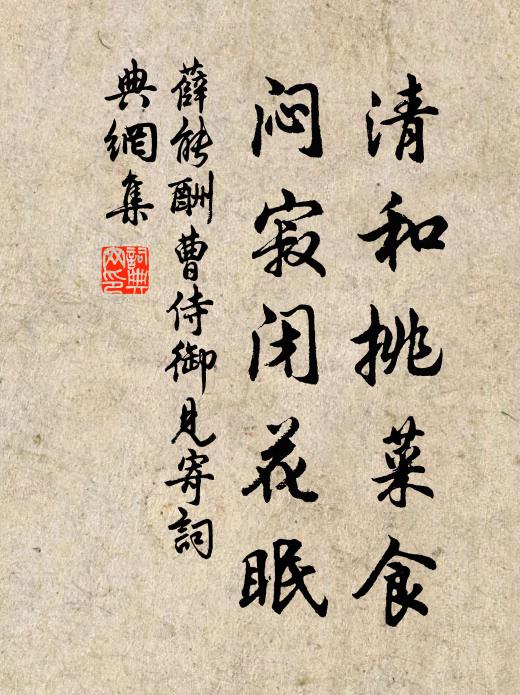 清和挑菜食
闷寂闭花眠
薛能酬曹侍御見寄詞
典網集
詞典
网印